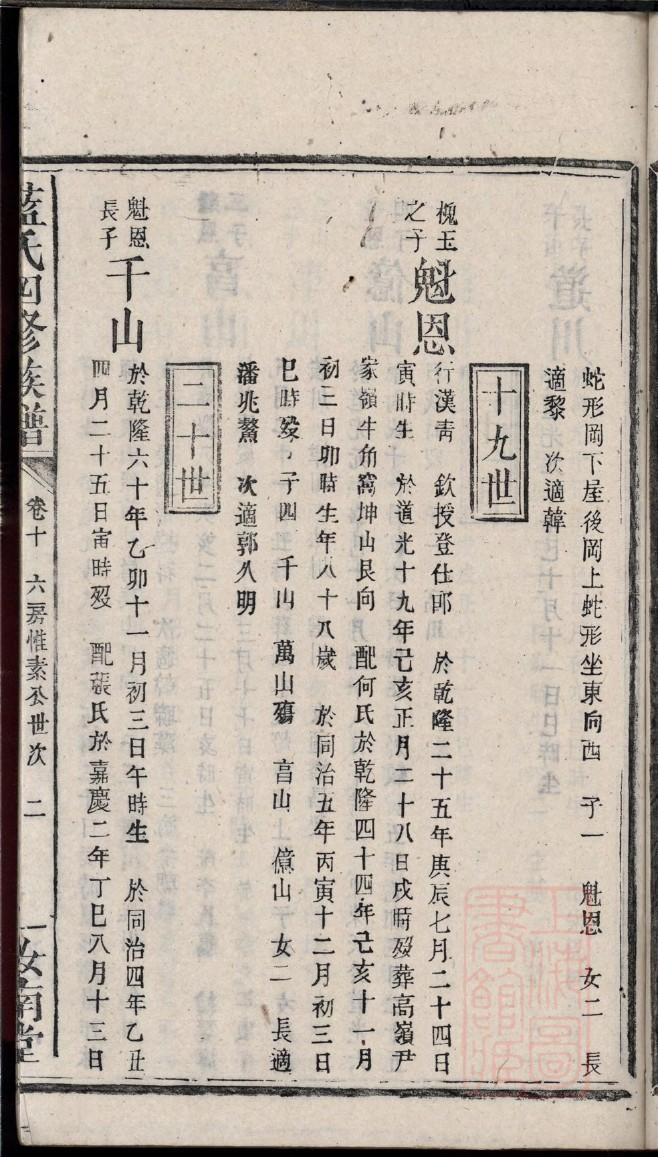 蛇形岡下屋後岡上蛇形坐東向西 子一 魁恩 女二 長
適黎 次適韓
十九世
槐玉之子 魁恩 行漢青 欽授登仕郎 於乾隆二十五年庚辰七月二十四日
寅時生 於道光十九年己亥正月二十八日戌時歿葬高嶺尹
家嶺牛角窩坤山艮向 配何氏於乾隆四十四年己亥十一月
初三日卯時生年八十八歲 於同治五年丙寅十二月初三日
巳時歿 子四 千山 萬山殤 高山 億山 女二 長適
潘兆鰲 次適郭久明
二十世
魁恩長子 千山 於乾隆六十年乙卯十一月初三日午時生 於同治四年乙丑
四月二十五日寅時歿 配張氏於嘉慶二年丁巳八月十三日
藍氏四修族譜 卷十 六房惟素公世次 二 汝南堂
上海圖書館藏